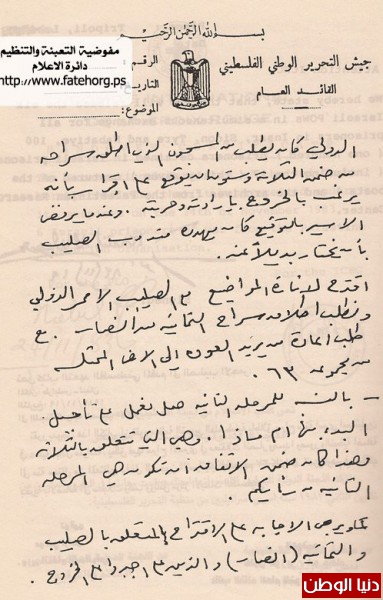 بسم الله الرحمن الرحيم
مفوضية التعبئة والتنظيم
دائرة الاعلام
http://www.fatehorg.ps
جيش التحرير الوطني الفلسطيني
القائد العام
الرقم :
التاريخ :
الموضوع :
الدولي كان يطلب من المسجون الذي اطلق سراحه
من ضمن الثلاثة وستون ان يوقع على اقرار بأنه
يرغب بالخروج بإرادته وحريته . وعندما يرفض
الاسير بالتوقيع كان يهدده مندوب الصليب
بأنه سنختار بديلاً عنه .
اقترح لإثارة المواضيع مع الصليب الاحمر الدولي
ونطلب اطلاق سراح الثمانية من انصار . مع
طلب اعادة من يريد العودة الى الارض المحتلة
من مجموعة ٦٣ .
- بالنسبة للمرحلة الثانية هل نعمل على تأجيل
البدء بها أم ماذا . وهي التي تتعلق بالثلاثة
وهذا كان ضمن الاتفاق أن تكون هي المرحلة
الثانية رأيكم .
الاجابة على الاقتراح المتعلق بالصليب
والثمانية (انصار) والذين اجبروا على الخروج .
دنيا الوطن